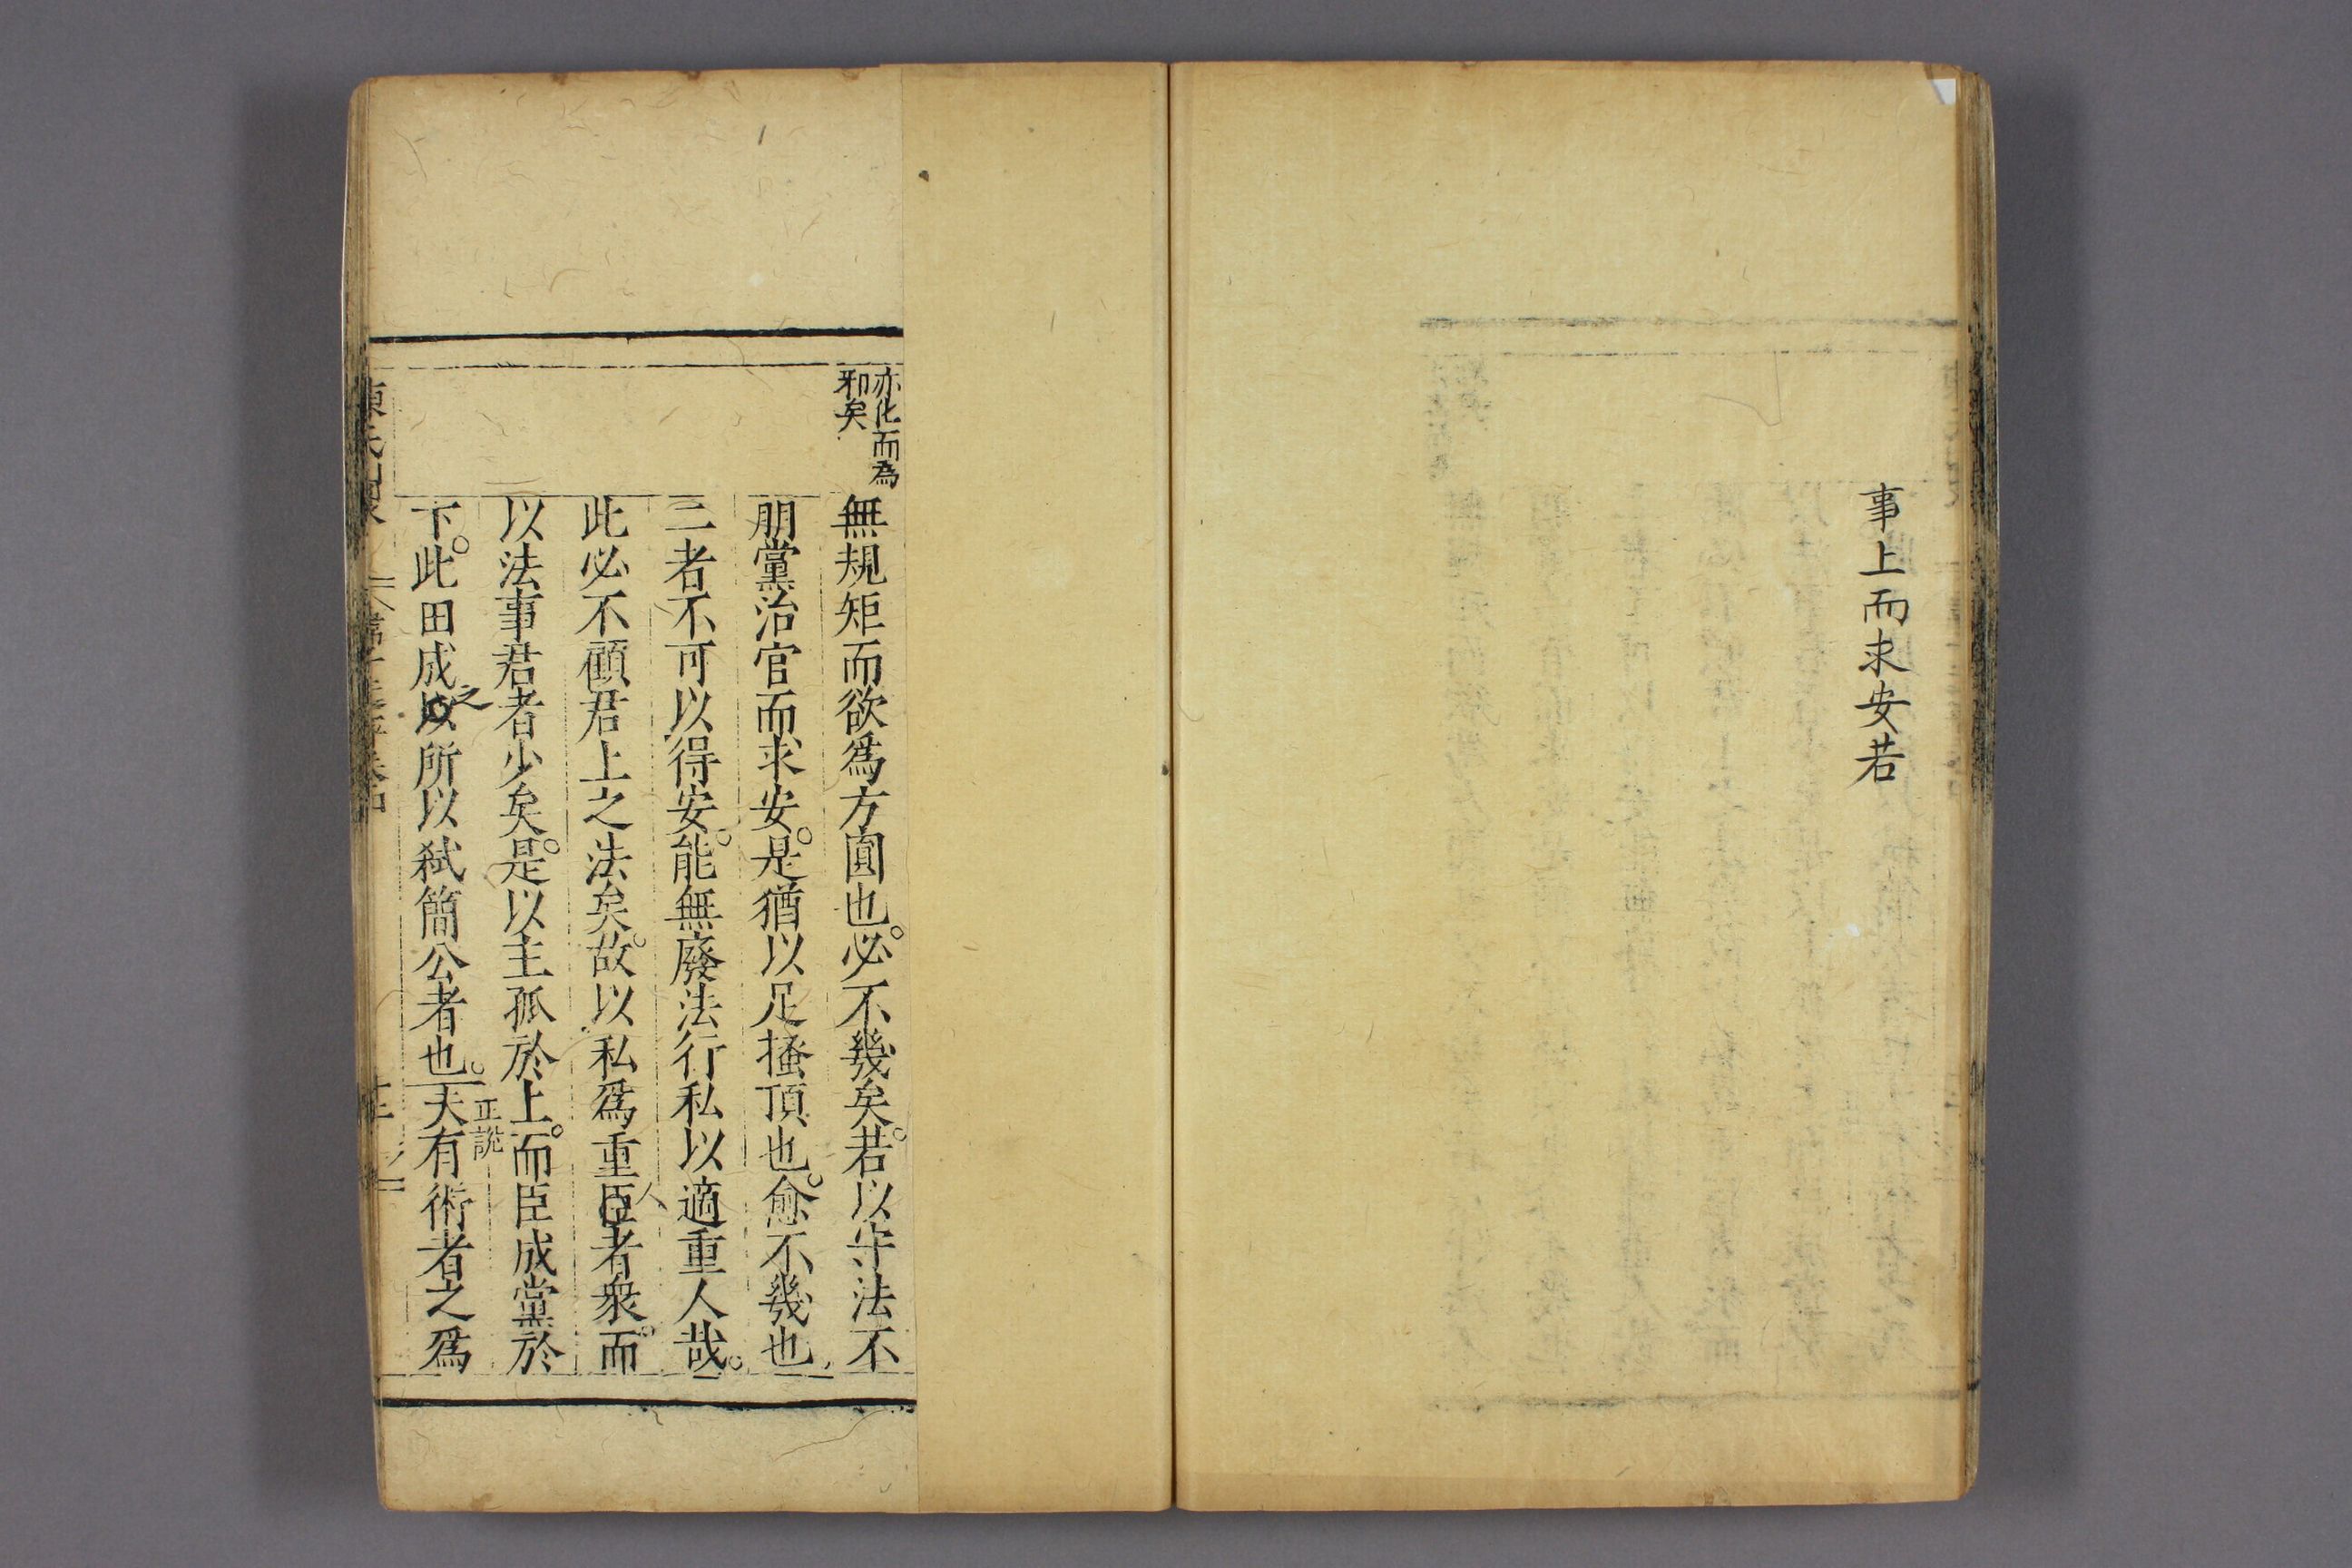 事上而求安若
亦化而為
邪矣
無規矩而欲爲方圓也必不幾矣若以守法不
朋黨治官而求安是猶以足搔頂也愈不幾也
二者不可以得安能無廢法行私以適重人哉
此必不顧君上之法矣故以私爲重臣者衆而
人
以法事君者少矣是以主孤於上而臣成黨於
正說
下此田成之所以弑簡公者也夫有術者之爲